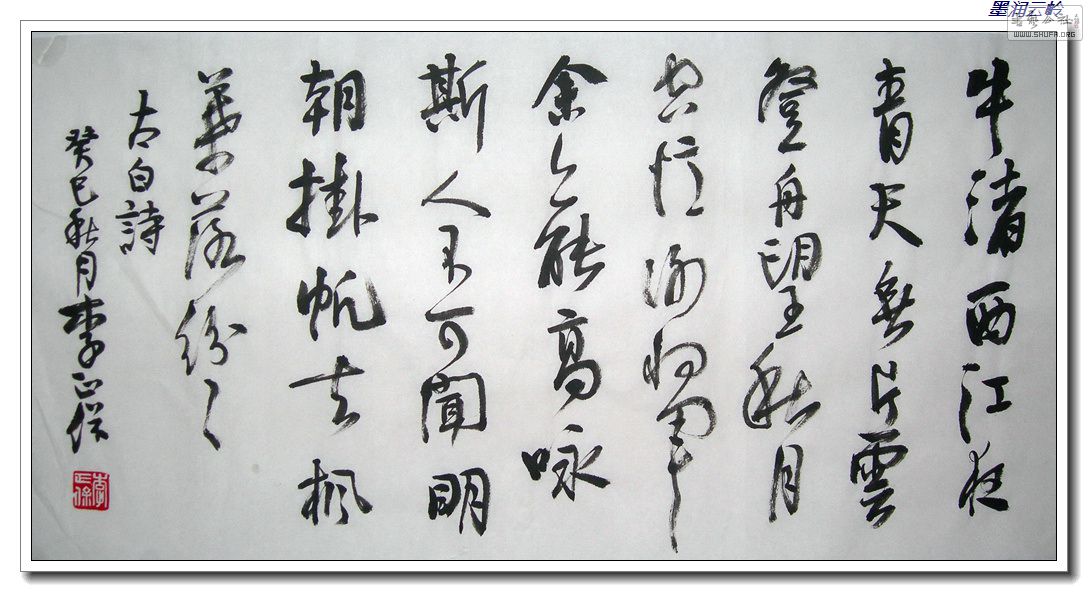 墨润云岭
书艺公社
WWW.SHUFA.ORG
牛渚西江夜
青天無片雲
登舟望秋月
空憶謝將軍
余亦能高咏
斯人不可聞明
朝掛帆去楓
葉落紛々
太白詩
癸巳秋月李正